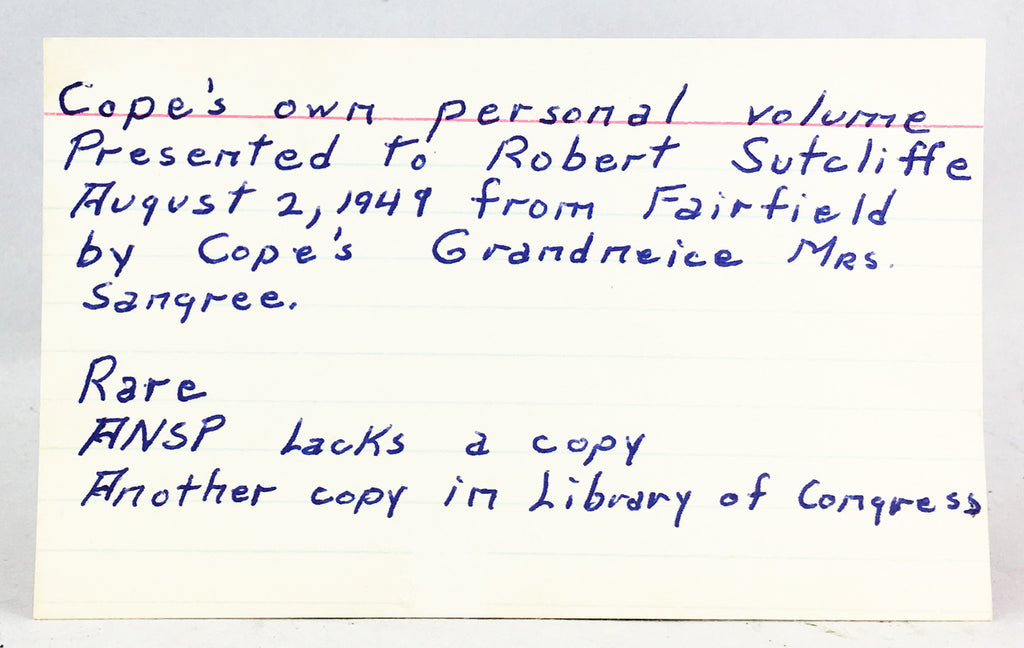 Cope's own personal volume
Presented to Robert Sutcliffe
August 2, 1949 from Fairfield
by Cope's Grandneice Mrs.
Sangree.
Rare
ANSP Lacks a copy
Another copy in Library of Congress